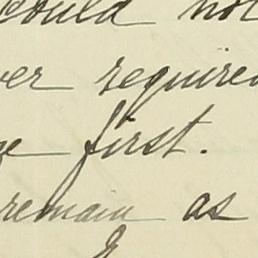 could not
er require
e first.
remain as